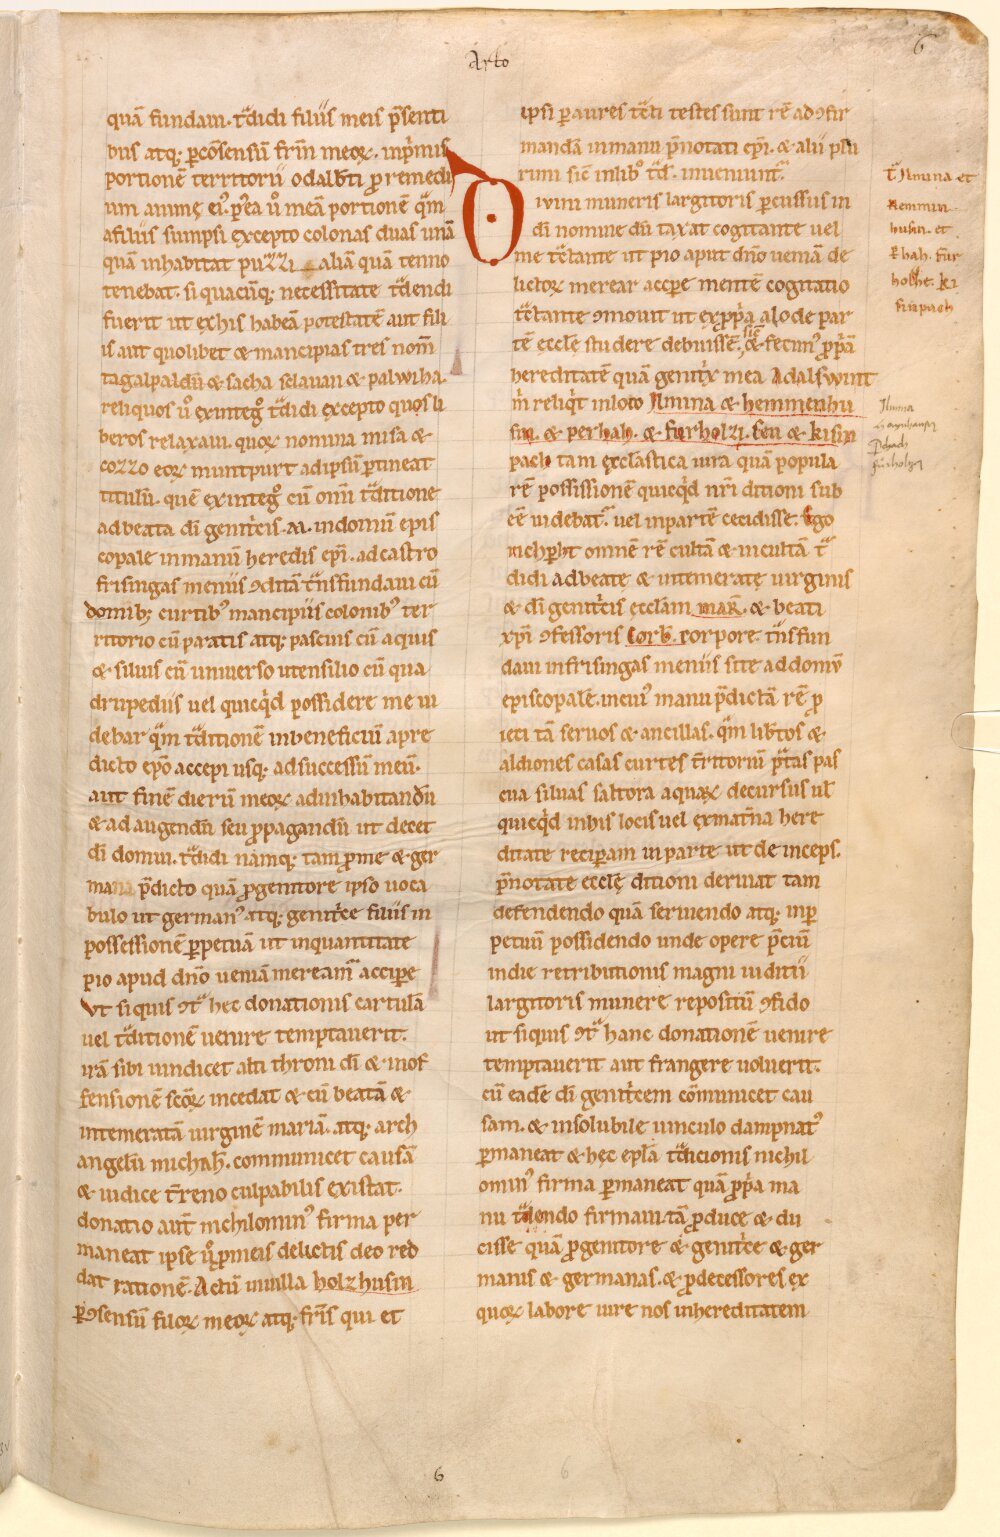 Atto
6
quā fundaui. tᵃdidi filiis meis p̄senti
bus atq; ꝑ cōsensū fr̄m meoꝝ. inp̄mis
portionē territorii odalb̄ti ꝓ remedii
um animę ei⁹. p̄ea ů meā portionē q̄m
a filiis sumpsi excepto colonas duas unā
quā inhabitat puZZi aliā quā tenno
tenebat. si quacūq; necessitate tᵃdendi
fuerit ut ex his habeā potestatē aut fili
is aut quolibet & mancipias tres nom̄
tagalpaldū & sacha sclauan & palwiha.
reliquos ů ex integͦ tᵃdidi excepto quos li
beros relaxaui. quoꝝ nomina misa &
cozzo eoꝝ muntpurt ad ipsū ꝑtineat
titulū. quē ex integͦ cū om̄i tᵃditione
ad beata dī genitͥcis .M. in domū epis
copale in manū heredis epī. ad castro
frisingas meniis ꝯditā tᵃnsfundaui cū
domib; curtib⁹ mancipiis colonib⁹ ter
ritorio cū paratis atq; pascuis cū aquis
& siluis cū uniuerso utensilio cū qua
drupediis uel quicq̇d possidere me ui
debar q̄m tᵃditionē in beneficiū a pre
dicto ep̄o accepi usq; ad successū meū.
aut finē dierū meoꝝ ad inhabitandū
& ad augendū seu ꝓpagandū ut decet
dī domui. tᵃdidi namq; tam ꝓ me & ger
mano p̄dicto quā ꝓgenitore ipso uoca
bulo ut german⁹ atq; genitͥce filiis in
possessionē ꝑpetuā ut in quantitate
pio apud dn̄o ueniā mereamͬ accipe
Ut si quis ꝯtᵃ hec donationis cartulā
uel tᵃditionē uenire temptauerit.
irā sibi uindicet alti throni dī & in of
fensionē sc̄oꝝ incedat & cū beatā &
intemeratā uirginē mariā. atq; arch
angelū michah̄. communicet causā
& iudice t̄reno culpabilis existat.
donatio aut̄ nichilomin⁹ firma per
maneat ipse q̊ꝗ ꝓ meis delictis deo red
dat rationē. Actū in uilla holzhusin
ꝑ ꝯsensū filioꝝ meoꝝ atq; fr̄is qui et
ipsi ꝑ aures tc̄ti testes sunt rē ad ꝯfir
mandā in manu p̄notati epī. & alii plu
rimi sic̄ in lib̄o tᵃd. inueniunt͛.
Diuini muneris largitoris percussus in
dī nomine dū taxat cogitante uel
me tc̄tante ut pio aput dn̄o ueniā de
lictoꝝ merear accipe mentē cogitatio
tc̄tante ꝯmouit ut ex ꝓpͥa alode par
tē ecclę studere debuissē. sic̄ & fecim⁹ ꝓpͥā
hereditatē quā genitͥx mea Adalswint
m̄ reliq̇t in loco Ilmina & hemmenhu
sin. & perhah. & furholzi. seu & kisin
pach tam ecclesiastica iura quā popula
rē possissionē quicq̇d nr̄i ditioni sub
cē uidebat͛. uel in partē cecidisse. Ego
richp̄ht omnē rē cultā & incultā tᵃ
didi ad beate & intemeratę uirginis
& dī genitͥcis ecclam mar̄. & beati
xp̄i ꝯfessoris Corb̄. corpore. tᵃnsfun
daui in frisingas meniis site ad domū
episcopalē. in cui⁹ manu p̄dictā rē ꝓ
ieci tā seruos & ancillas. q̄m lib̄tos &
aldiones casas curtes t̄ritoriū pᵃtas pas
cua siluas saltora aquaꝝ decursus ul̄
quicq̇d in his locis uel ex mat̄na here
ditate recipam in parte ut deinceps.
p̄notate ecclę ditioni deruiat tam
defendendo quā seruiendo atq; in ꝑ
petuū possidendo unde opere p̄ciū
in die retributionis magni iuditii
largitoris munere repositū ꝯfido
ut siquis ꝯtᵃ hanc donationē uenire
temptauerit aut frangere uoluerit.
cū eadē dī genitͥcem cōmunicet cau
sam. & insolubile uinculo dampnat⁹
ꝑmaneat & hęc epl̄a tᵃdicionis nichil
omin⁹ firma ꝑmaneat quā ꝓpͥa ma
nu tᵃdendo firmaui. tā ꝓ duce & du
cisse quā ꝓgenitore & genitͥce & ger
manis & germanas. & ꝓdecessores ex
quoꝝ labore iure nos in hereditatem
Tᵃ Ilmina et
Hemmin
husin. et
P̄hah. fur
holthe. ki
sinpach
Ilmina
Hemhausen
P̄chach
furholzen
6